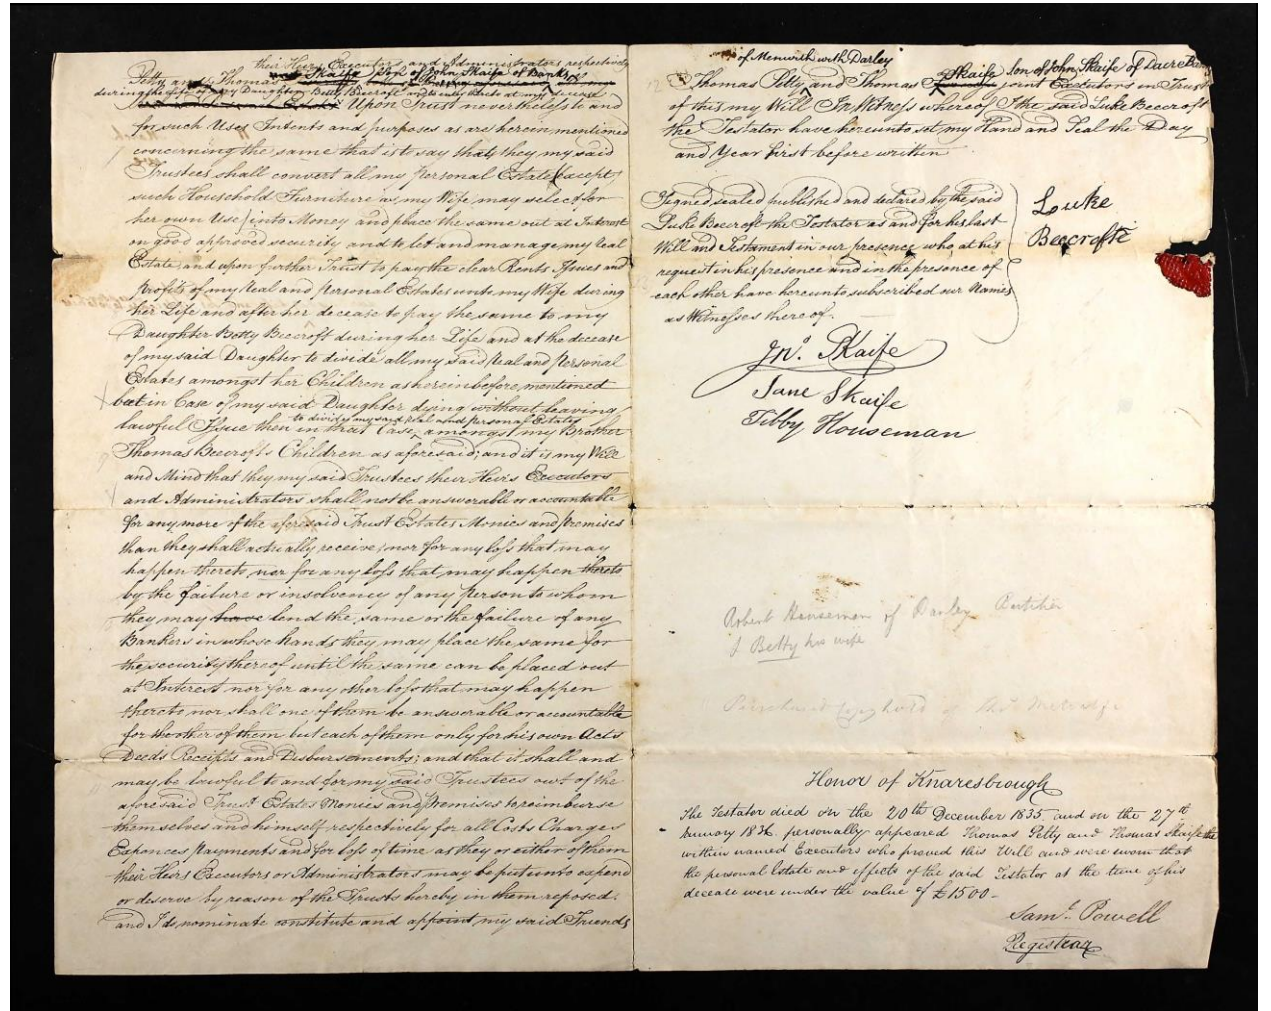 their Heirs Executors and Administrators respectively
Petty and Thomas Skaife Son of John Skaife of Bankross
during the life of my Daughter Betty Beecroft and
Upon Trust nevertheless to and
for such Uses Intents and purposes as are herein mentioned
concerning the same that is to say that they my said
Trustees shall convert all my personal Estate (except
such Household Furniture as my Wife may select for
her own Use) into Money and place the same out at Interest
on good approved security and to let and manage my real
Estate and upon further Trust to pay the clear Rents Issues and
profits of my real and personal Estates unto my Wife during
her Life and after her decease to pay the same to my
Daughter Betty Beecroft during her Life and at the decease
of my said Daughter to divide all my said real and personal
Estates amongst her Children as hereinbefore mentioned
but in Case of my said Daughter dying without leaving
to divide my said real and personal Estates
lawful Issue then in that Case amongst my Brother
Thomas Beecrofts Children as aforesaid; and it is my Will
and Mind that they my said Trustees their Heirs Executors
and Administrators shall not be answerable or accountable
for any more of the aforesaid Trust Estates Monies and premises
than they shall actually receive; nor for any loss that may
happen thereto nor for any loss that may happen thereto
by the failure or insolvency of any person to whom
they may have lend the same or the failure of any
Bankers in whose hands they may place the same for
the security thereof until the same can be placed out
at Interest nor for any other loss that may happen
thereto nor shall one of them be answerable or accountable
for the other of them but each of them only for his own Acts
Deeds Receipts and Disbursements; and that it shall and
may be lawful to and for my said Trustees out of the
aforesaid Trust Estates Monies and premises to reimburse
themselves and himself respectively for all Costs Charges
Expences payments and for loss of time as they or either of them
their Heirs Executors or Administrators may be put unto expend
or deserve by reason of the Trusts hereby in them reposed.
and I do nominate constitute and appoint my said Friends
of Menwith with Darley
Skaife Son of John Skaife of Dacre Banks
Thomas Petty and Thomas joint Executors in Trust
of this my Will In Witness whereof I the said Luke Beecroft
the Testator have hereunto set my Hand and Seal the Day
and Year first before written
Signed sealed published and declared by the said
Luke Beecroft the Testator as and for his last
Will and Testament in our presence who at his
request in his presence and in the presence of
each other have hereunto subscribed our Names
as Witnesses thereof.
Luke
Beecrofte
Jno. Skaife
Jane Skaife
Tibby Houseman
Robert Houseman of Darley
& Betty his wife
Honor of Knaresbrough
The Testator died on the 20th December 1835. and on the 27th
January 1836. personally appeared Thomas Petty and Thomas Skaife the
within named Executors who proved this Will and were sworn that
the personal Estate and effects of the said Testator at the time of his
decease were under the value of £1500-
Saml. Powell
Registrar